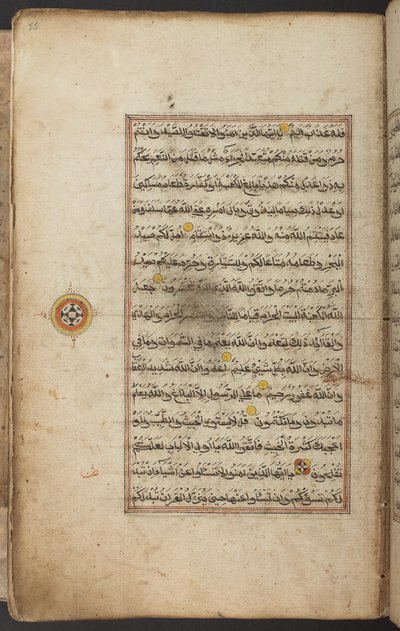 55
فله عذاب اليم يايها الذين امنوا لا تقتلوا الصيد وانتم
حرم ومن قتله منكم متعمدا فجزاء مثل ما قتل من النعم يحكم
به ذوا عدل منكم هديا بالغ الكعبة او كفارة طعام مساكين
او عدل ذلك صياما ليذوق وبال امره عفا الله عما سلف ومن
عاد فينتقم الله منه والله عزيز ذو انتقام احل لكم صيد
البحر وطعامه متاعا لكم وللسيارة وحرم عليكم صيد
البر ما دمتم حرما واتقوا الله الذي اليه تحشرون جعل
الله الكعبة البيت الحرام قياما للناس والشهر الحرام والهدي
والقلائد ذلك لتعلموا ان الله يعلم ما في السموات وما في
الارض وان الله بكل شيء عليم اعلموا ان الله شديد العقاب
وان الله غفور رحيم ما على الرسول الا البلاغ والله يعلم
ما تبدون وما تكتمون قل لا يستوي الخبيث والطيب ولو
اعجبك كثرة الخبيث فاتقوا الله ياولي الالباب لعلكم
تفلحون يايها الذين امنوا لا تسئلوا عن اشياء ان تبد
لكم تسؤكم وان تسئلوا عنها حين ينزل القران تبد لكم